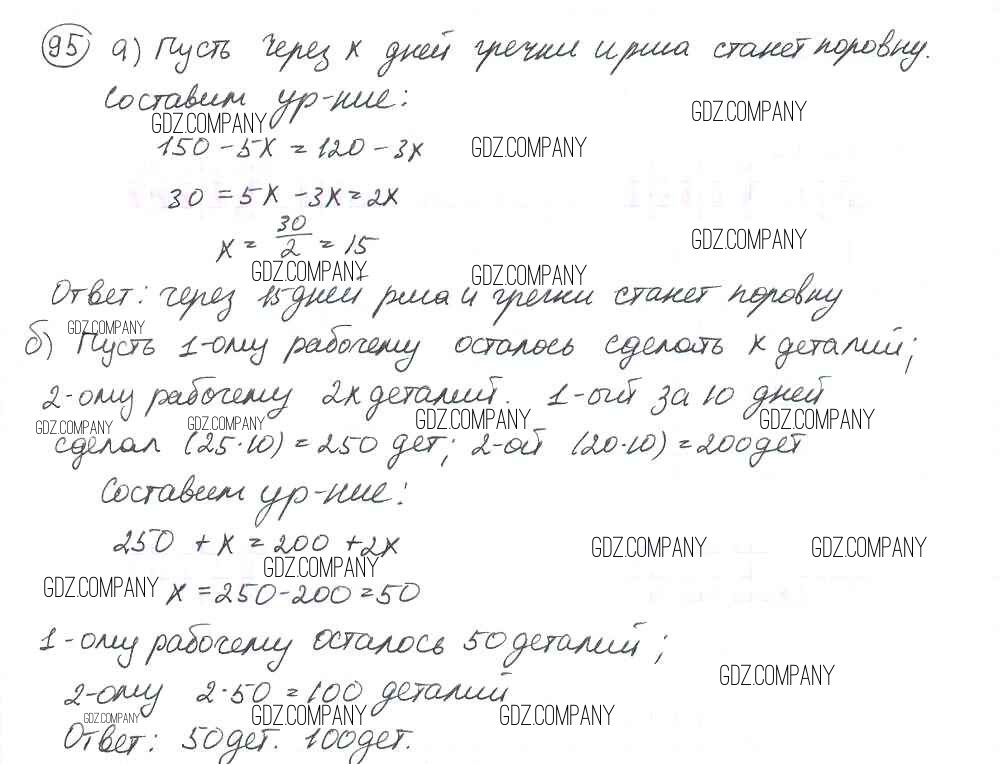 95 а) Пусть через x дней гречки и риса станет поровну.
Составим ур-ние:
GDZ.COMPANY
GDZ.COMPANY
150 - 5x = 120 - 3x
GDZ.COMPANY
30 = 5x - 3x = 2x
x = 30/2 = 15
GDZ.COMPANY
GDZ.COMPANY
GDZ.COMPANY
Ответ: через 15 дней риса и гречки станет поровну
GDZ.COMPANY
б) Пусть 1-ому рабочему осталось сделать x деталий;
2-ому рабочему 2x деталий. 1-ый за 10 дней
GDZ.COMPANY
GDZ.COMPANY
GDZ.COMPANY
GDZ.COMPANY
сделал (25·10) = 250 дет; 2-ой (20·10) = 200 дет
Составим ур-ние:
250 + x = 200 + 2x
GDZ.COMPANY
GDZ.COMPANY
GDZ.COMPANY
GDZ.COMPANY
x = 250 - 200 = 50
1-ому рабочему осталось 50 деталий;
GDZ.COMPANY
2-ому 2·50 = 100 деталий
GDZ.COMPANY
GDZ.COMPANY
GDZ.COMPANY
Ответ: 50 дет. 100 дет.